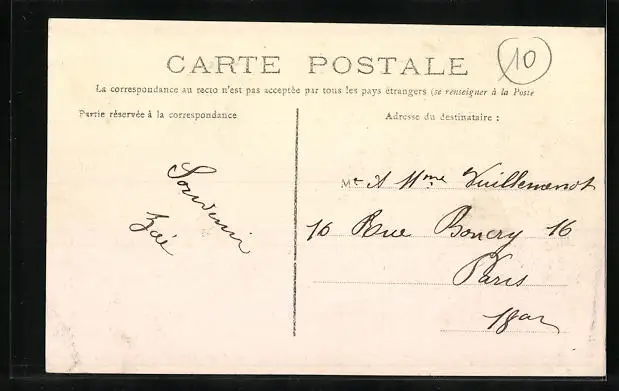 CARTE POSTALE
10
La correspondance au recto n'est pas acceptée par tous les pays étrangers (se renseigner à la Poste
Partie réservée à la correspondance
Souvenir
Zoé
Adresse du destinataire :
Mr & Mme Vuillemenot
16 Rue Boucry 16
Paris
18ar